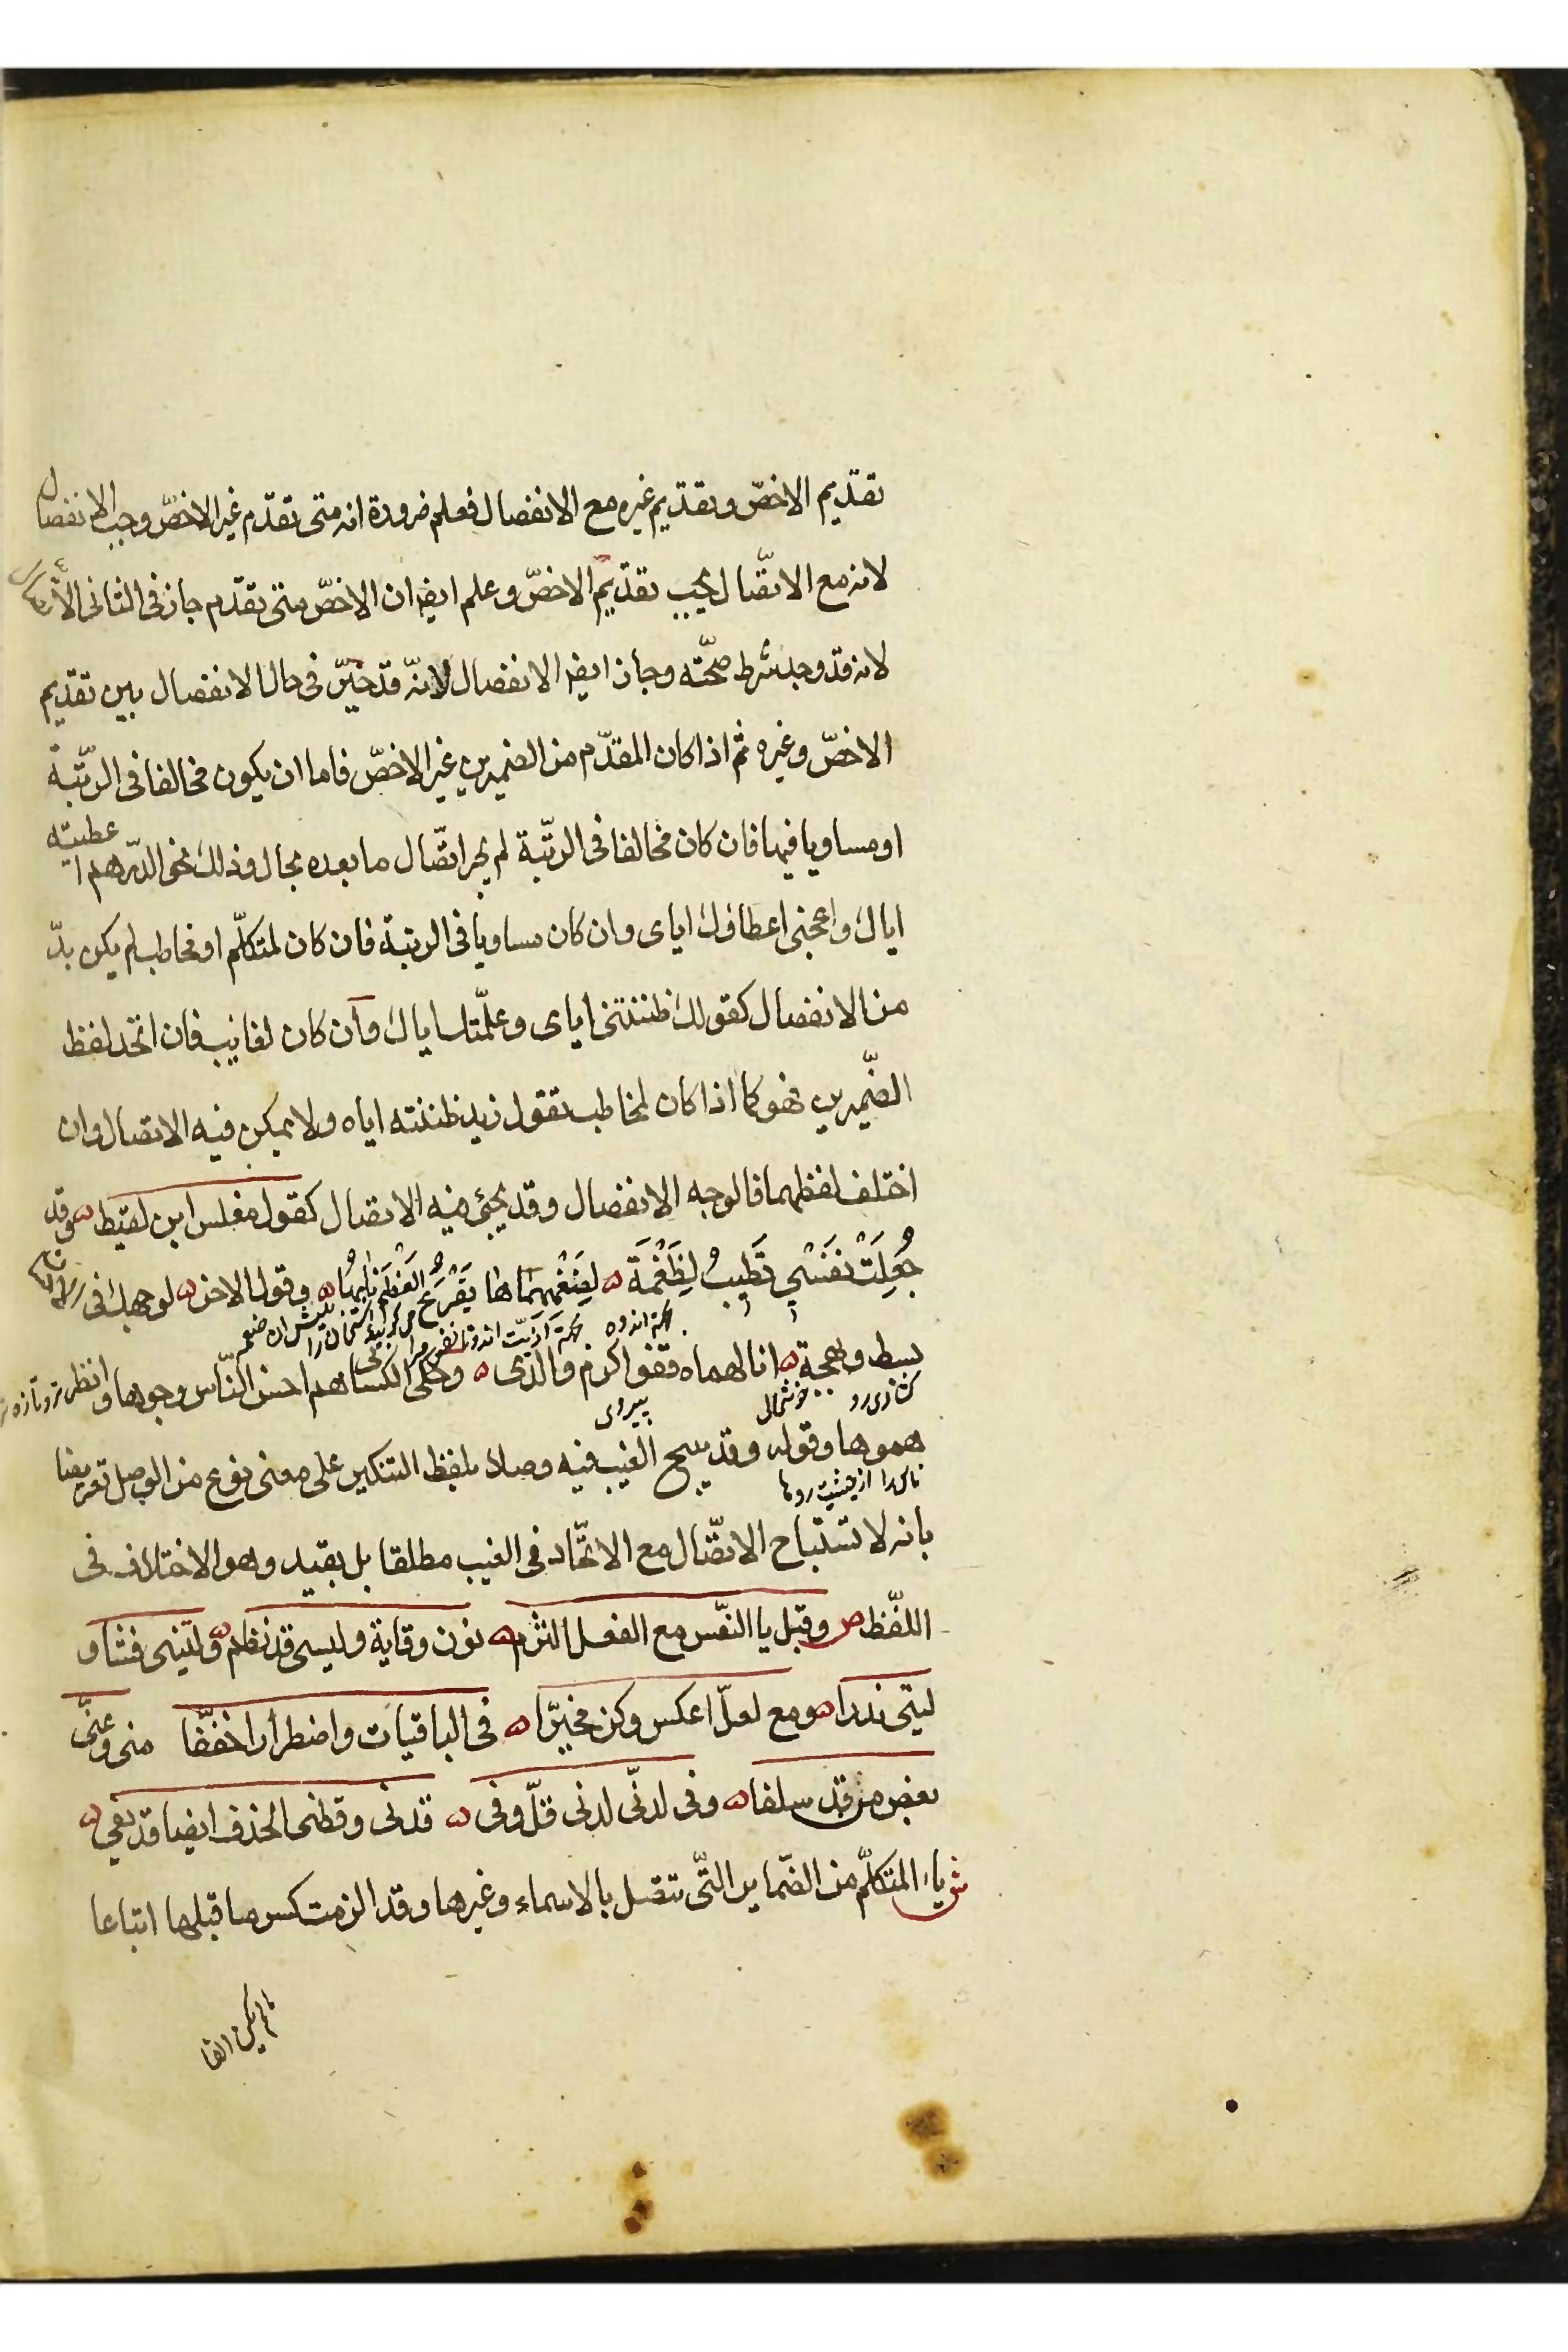 تقديم الاخصّ وبقديم غيره مع الانفصال فعلم ضرورة انه متى تقدّم غير الاخصّ وجب الانفصال
لانه مع الاتّصال يجب تقديم الاخصّ وعلم ايضا ان الاخصّ متى تقدّم جاز فى الثانى الا
لانه قد وجد شرط صحّته وجاز ايضا الانفصال لانّه قد خيّر فى حال الانفصال بين تقديم
الاخصّ وغيره ثم اذا كان المقدّم من الضميرين غير الاخصّ فاما ان يكون مخالفا فى الرّتبة
او مساويا فيها فان كان مخالفا فى الرّتبة لم يجز اتّصال ما بعده بحال وذلك نحو الدّرهم
اعطيته
اياك واعجبنى اعطاؤك اياى وان كان مساويا فى الرتبة فان كان لمتكلّم او مخاطب لم يكن بدّ
من الانفصال كقولك ظننتنى اياى وعلّمتك اياك وان كان لغايب فان اتّحد لفظ
الضّميرين فهو كما اذا كان لمخاطب تقول زيد ظننته اياه ولا يمكن فيه الاتصال وان
اختلف لفظهما فالوجه الانفصال وقد يجئ فيه الاتصال كقول مغلس ابن لقيط وقد
جُعِلَتْ نَفَسْي تَطِيبُ لِضَغْمَة لِضَغْمِهِمَاها يَقْرَعُ العَظْمَ نابُها وقول الاخر لوجهك فى
بسط وبهجة انالهماه قفو اكرم والدى وحكى الكسا هم احسن النّاس وجوها وانظر
هموها وقوله وقد يبيح الغيب فيه وصلا بلفظ التنكير على معنى نوع من الوصل تعريضا
بانه لا تستباح الاتّصال مع الاتّحاد فى الغيب مطلقا بل بقيد وهو الاختلاف فى
اللفّظ ص وقبل يا النّفس مع الفعل التزم نون وقاية وليسى قد نظم وليتنى فشا و
ليتى ندرا ومع لعلّ اعكس وكن مخيّرا فى الباقيات واضطرارا خفّفا منى وعنّى
بعض من قد سلفا وفى لدنّى لدنى قلّ وفى قدنى وقطنى الحذف ايضا قد يفى
ش ياء المتكلّم من الضّماير التّى تتصل بالاسماء وغيرها وقد الزمت كسر ما قبلها اتباعا